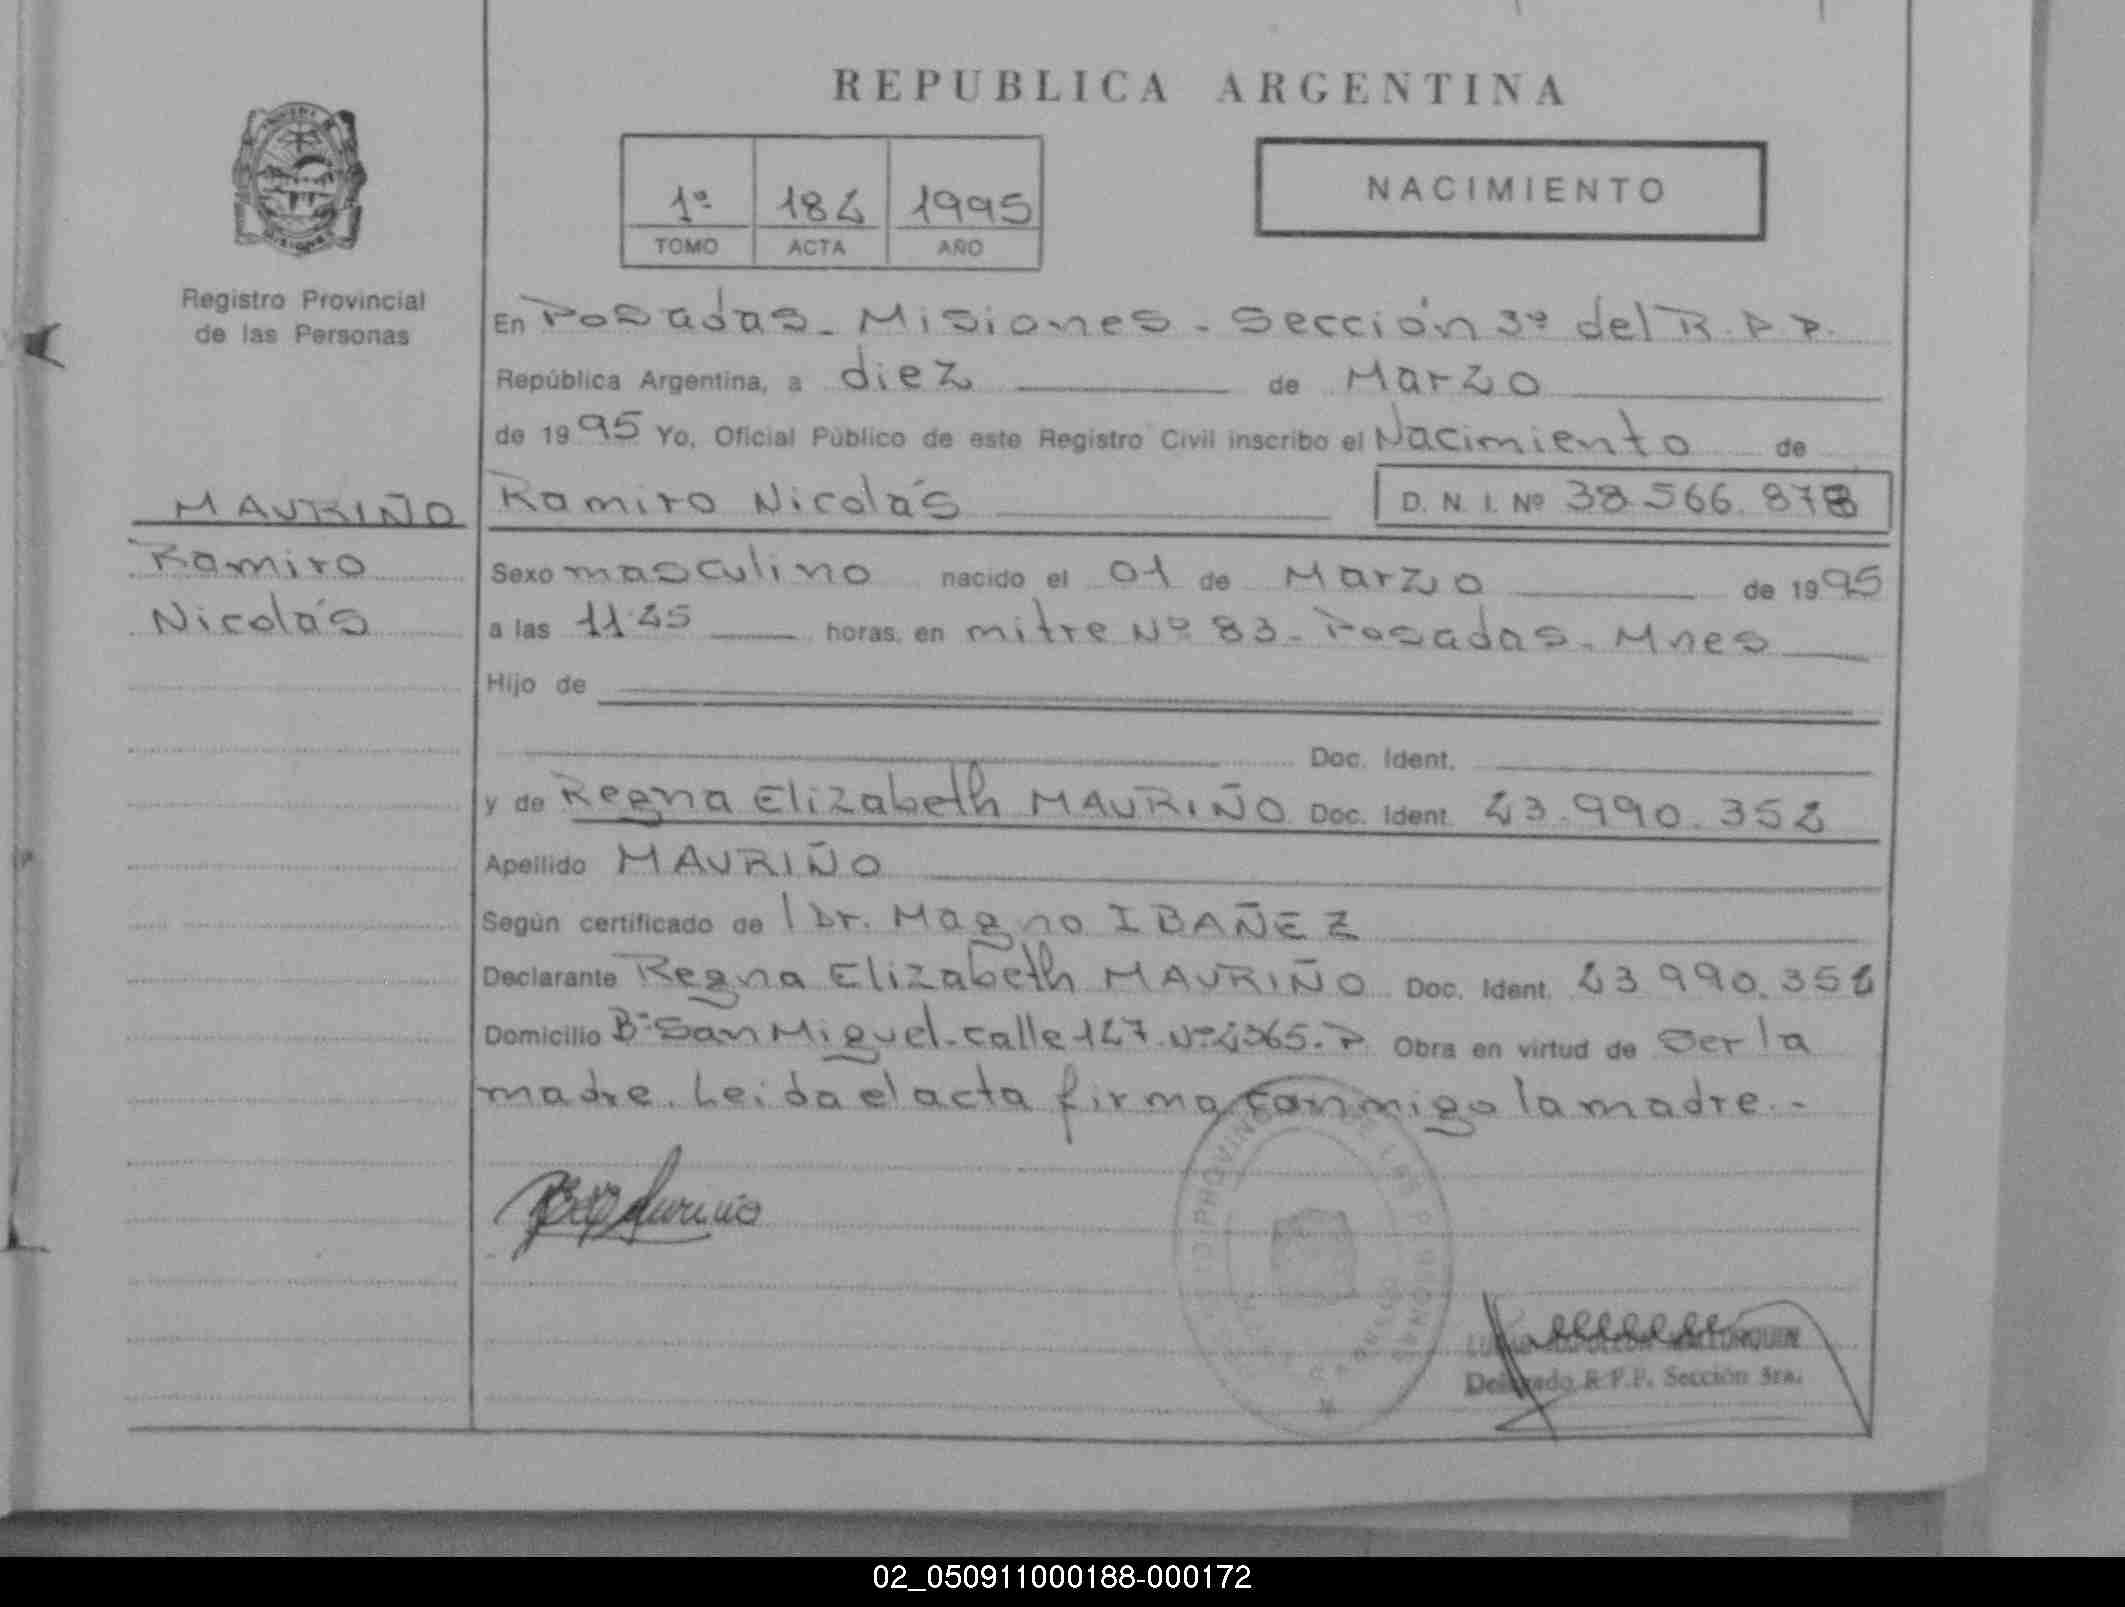 REPUBLICA ARGENTINA
1º 182 1995
TOMO ACTA AÑO
NACIMIENTO
Registro Provincial
de las Personas
En Posadas - Misiones - Sección 3º del R.P.P.
República Argentina, a diez de Marzo
de 1995 Yo, Oficial Público de este Registro Civil inscribo el Nacimiento de
MAURIÑO
Ramiro Nicolás D. N. I. Nº 38.566.878
Ramiro
Nicolás
Sexo masculino nacido el 01 de Marzo de 1995
a las 11:25 horas, en mitre Nº 83 - Posadas - Mnes
Hijo de
Doc. Ident.
y de Regna Elizabeth MAURIÑO Doc. Ident. 23.990.352
Apellido MAURIÑO
Según certificado de l Dr. Magno IBAÑEZ
Declarante Regna Elizabeth MAURIÑO Doc. Ident. 23.990.352
Domicilio Bº San Miguel - calle 127 Nº Obra en virtud de ser la
madre. Leida el acta firma conmigo la madre. -
Delegado R.P.P. Sección 3ra.
02_050911000188-000172